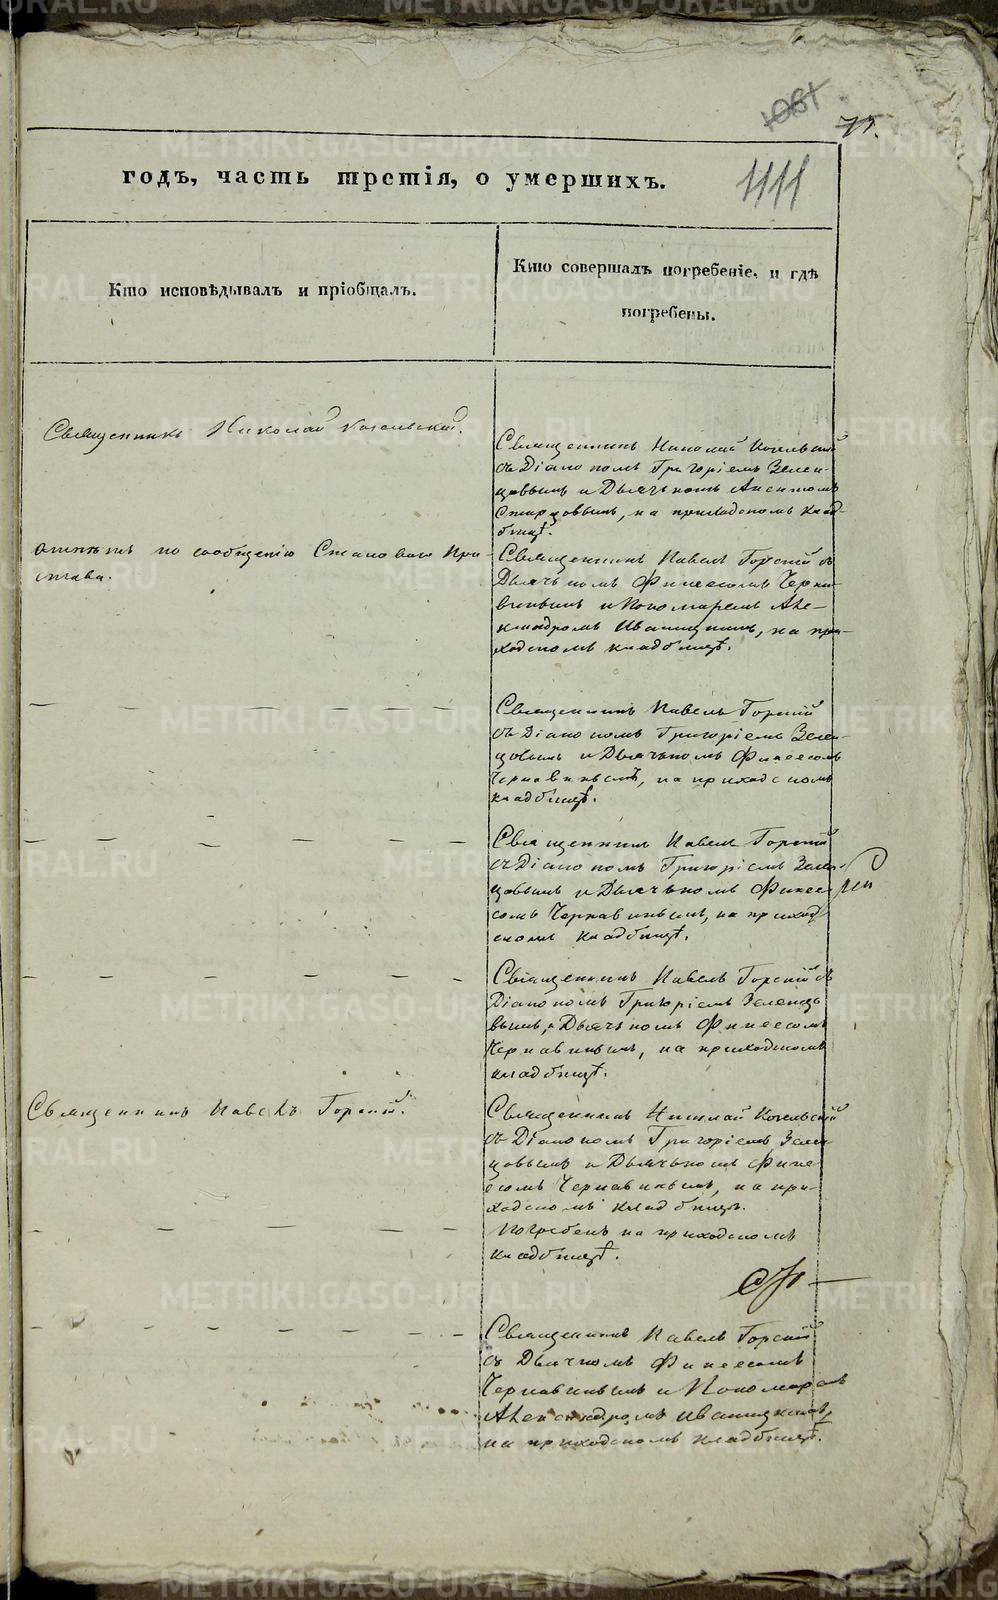 1081
75.
годъ, часть третія, о умершихъ.
1111
Кто исповѣдывалъ и пріобщалъ.
Кто совершалъ погребеніе, и гдѣ
погребены.
Священникъ Николай Когельскій.
Священникъ Николай Когельскій
съ Діакономъ Григоріемъ Зелен-
цовымъ и Дьячкомъ
Старцовымъ, на приходскомъ клад-
бищѣ.
по сообщенію Становаго При-
става.
Священникъ Павелъ Горскій съ
Дьячкомъ Финеесомъ Черна-
винымъ и Пономаремъ Але-
ксандромъ Иваницкимъ, на при-
ходскомъ кладбищѣ.
Священникъ Павелъ Горскій
съ Діакономъ Григоріемъ Зелен-
цовымъ и Дьячкомъ Финеесомъ
Чернавинымъ, на приходскомъ
кладбищѣ.
Священникъ Павелъ Горскій
съ Діакономъ Григоріемъ Зелен-
цовымъ и Дьячкомъ Финее-
сомъ Чернавинымъ, на приход-
скомъ кладбищѣ.
Священникъ Павелъ Горскій съ
Діакономъ Григоріемъ Зеленцо
вымъ, и Дьячкомъ Финеесомъ
Чернавинымъ, на приходскомъ
кладбищѣ.
Священникъ Павелъ Горскій.
Священникъ Николай Когельскій
съ Діакономъ Григоріемъ Зелен-
цовымъ и Дьячкомъ Фине-
есомъ Чернавинымъ, на при-
ходскомъ кладбищѣ.
Погребенъ на приходскомъ
кладбищѣ.
Священникъ Павелъ Горскій
съ Дьячкомъ Финеесомъ
Чернавинымъ и Пономаремъ
Александромъ Иваницкимъ,
на приходскомъ кладбищѣ.
METRIKI.GASO-URAL.RU